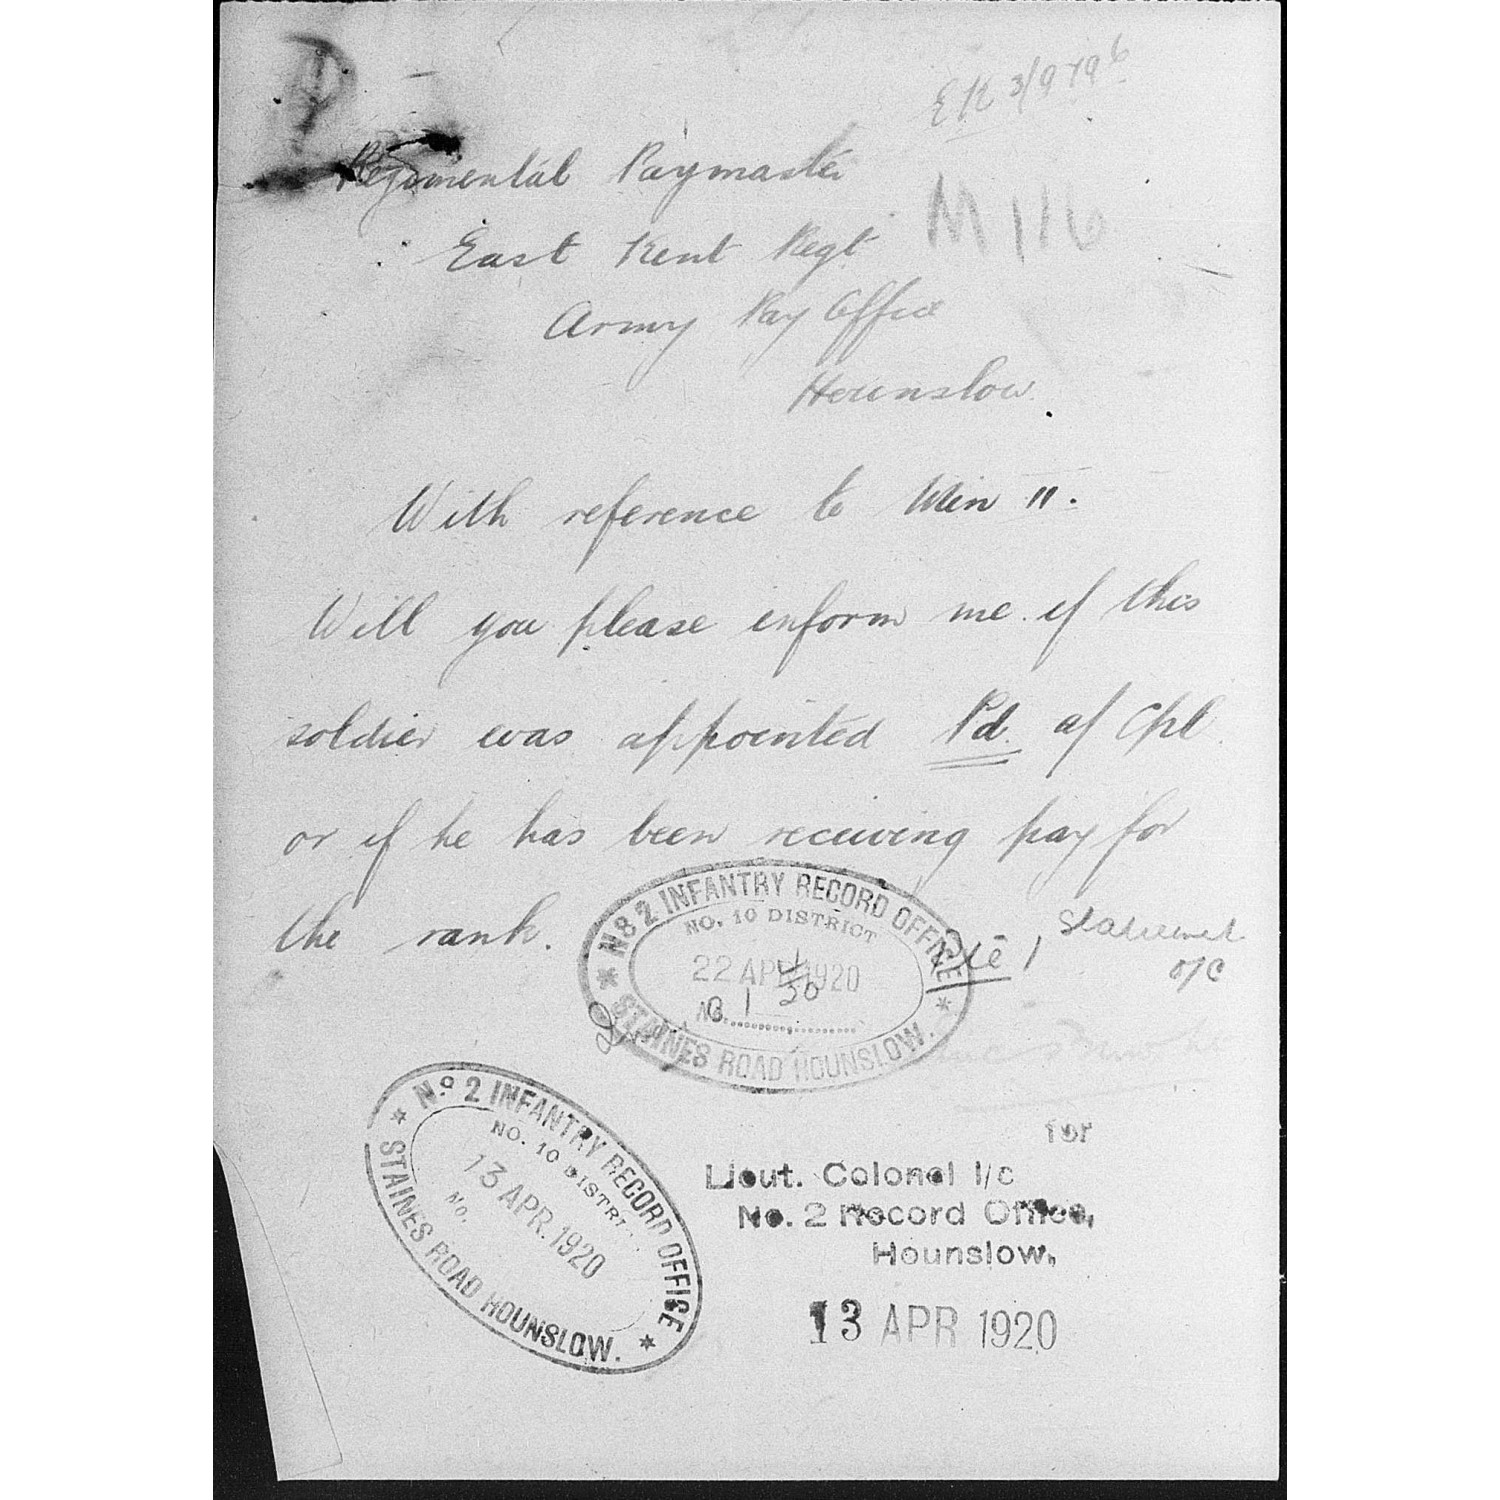 EK 3/9796
Regimental Paymaster
M 116
East Kent Regt
Army Pay Office
Hounslow.
With reference to Min 11.
Will you please inform me if this
soldier was appointed Pd. a/ Cpl.
or if he has been receiving pay for
the rank.
Statement
o/c
No 2 INFANTRY RECORD OFFICE
NO. 10 DISTRICT
22 APR 1920
NO.
STAINES ROAD HOUNSLOW.
No 2 INFANTRY RECORD OFFICE
NO. 10 DISTRICT
13 APR. 1920
No.
STAINES ROAD HOUNSLOW.
for
Lieut. Colonel I/c
No. 2 Record Office,
Hounslow,
13 APR 1920